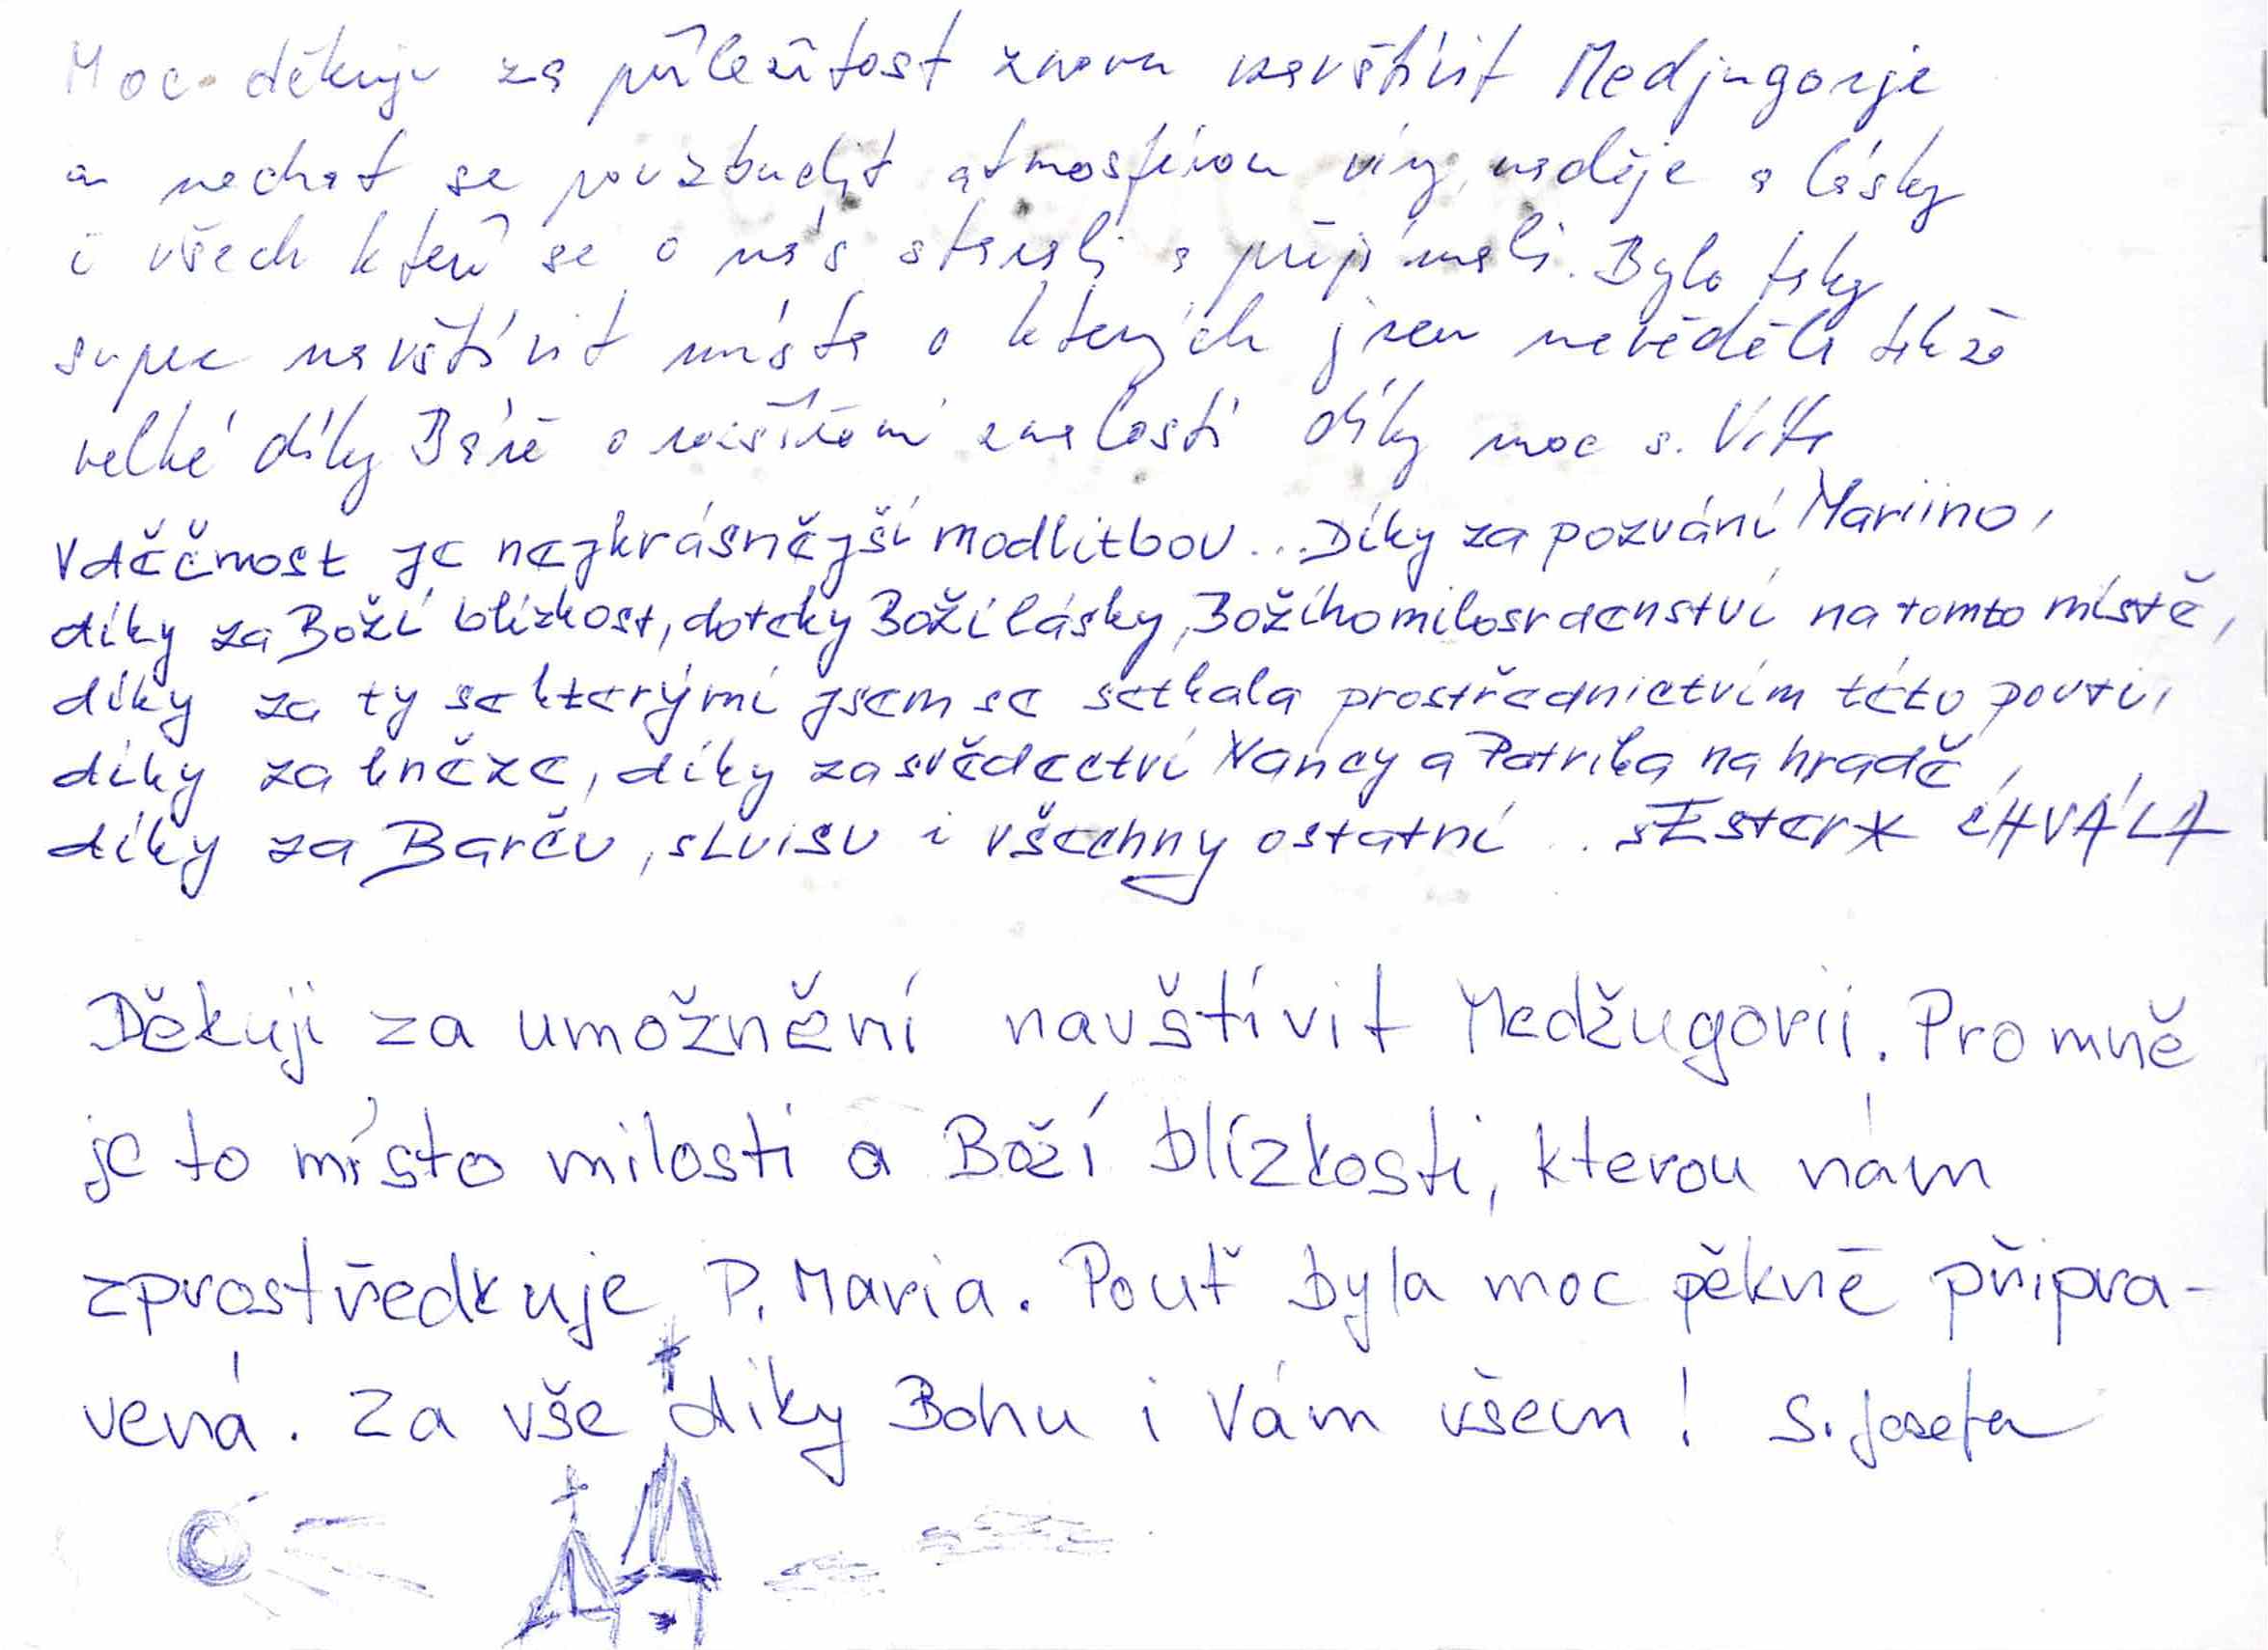 Moc děkuji za příležitost znovu navštívit Medjugorje
a nechat se povzbudit atmosférou víry, naděje a lásky
i všech kteří se o nás starali a přijímali. Bylo taky
super navštívit místa o kterých jsem nevěděla takže
velké díky Báře o rozšíření znalostí díky moc s. Víťa
Vděčnost je nejkrásnější modlitbou... Díky za pozvání Mariino,
díky za Boží blízkost, doteky Boží lásky, Božího milosrdenství na tomto místě,
díky za ty se kterými jsem se setkala prostřednictvím této pouti,
díky za kněze, díky za svědectví Nancy a Patrika na hradě,
díky za Barču, sLuisu i všechny ostatní .. sEster CHVÁLA
Děkuji za umožnění navštívit Medžugorii. Pro mně
je to místo milosti a Boží blízkosti, kterou nám
zprostředkuje P. Maria. Pouť byla moc pěkně připra-
vená. Za vše díky Bohu i Vám všem! S. Josefa